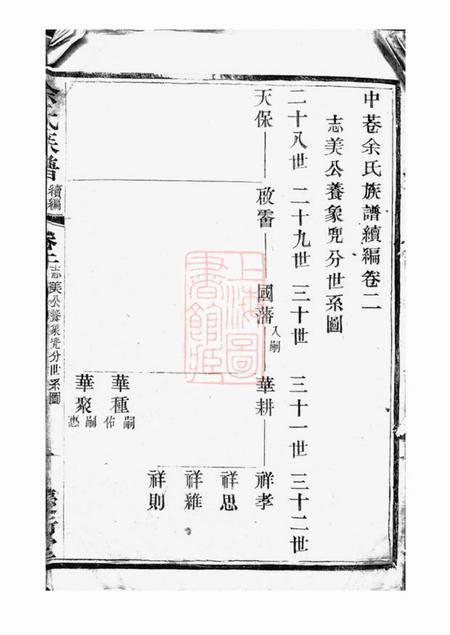 中巷余氏族譜續編卷二
志美公養象兜分世系圖
二十八世 二十九世 三十世 三十一世 三十二世
天保 啟雷 國藩入嗣 華耕 祥孝
祥思
祥維
祥則
華種嗣佈
華聚嗣惠
余氏族譜續編 卷二 志美公養象兜分世系圖
上海圖書館藏